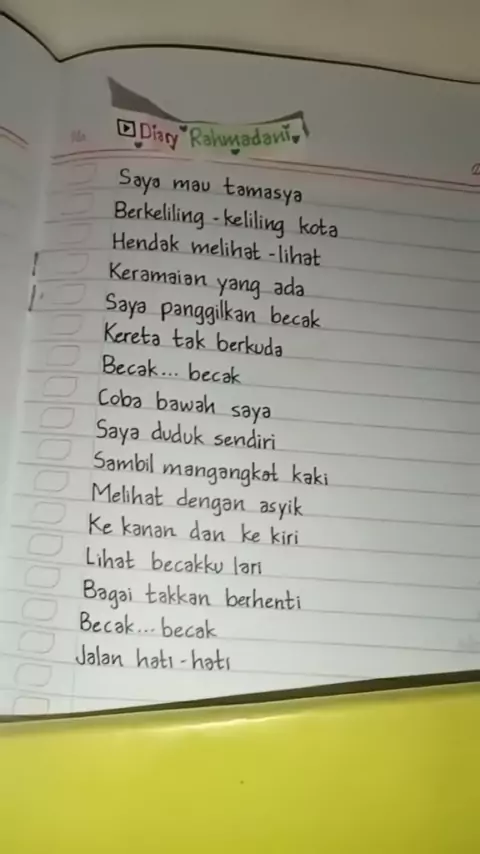 No
Diary Rahmadani
Saya mau tamasya
Berkeliling - keliling kota
Hendak melihat - lihat
Keramaian yang ada
Saya panggilkan becak
Kereta tak berkuda
Becak... becak
Coba bawah saya
Saya duduk sendiri
Sambil mangangkat kaki
Melihat dengan asyik
Ke kanan dan ke kiri
Lihat becakku lari
Bagai takkan berhenti
Becak... becak
Jalan hati - hati